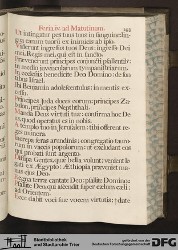 Feria iv. ad Matutinum.
Ut intingatur pes tuus in sanguine: lin-
Viderunt ingressus tuos Deus: ingressus Dei
mei, Regis mei, qui est in sancto.
Praevenerunt principes conjuncti psallentibus:
in medio juvencularum tympanistriarum.
In ecclesiis benedicite Deo Domino: de fon-
tibus Israel.
Ibi Benjamin adolescentulus: in mentis ex-
Principes Juda duces eorum: principes Za-
bulon, principes Nephthali.
Manda Deus virtuti tuae: confirma hoc De-
us, quod operatus es in nobis.
A templo tuo in Jerusalem: tibi offerent re-
ges munera.
Increpa feras arundinis: congregatio tauro-
rum in vaccis populorum: ut excludant eos
qui probati sunt argento.
Dissipa Gentes, quae bella volunt: venient le-
gati ex Aegypto: Aethiopia praeveniet ma-
nus ejus Deo.
Regna terrae cantate Deo: psallite Domino:
Psallite Deo, qui ascendit super coelum coeli:
ad Orientem.
Ecce dabit voci suae vocem virtutis: date
Stadtbibliothek
und Stadtarchiv Trier
gefördert von der
Deutschen Forschungsgemeinschaft
DFG